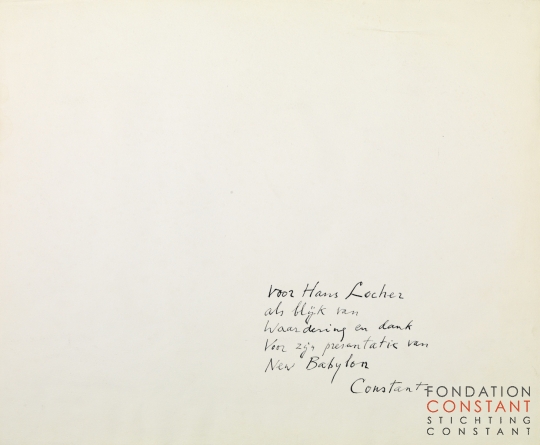 voor Hans Locher
als blijk van
waardering en dank
voor zijn presentatie van
New Babylon
Constant
FONDATION
CONSTANT
STICHTING
CONSTANT